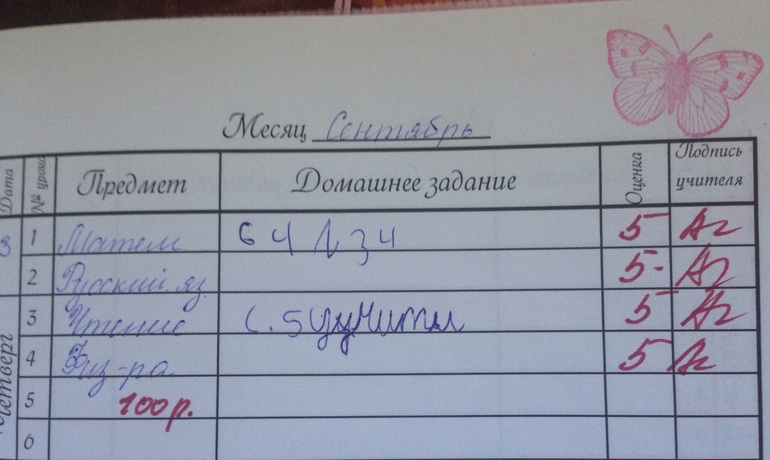 Месяц Сентябрь
Дата № урока Предмет Домашнее задание Оценка Подпись учителя
3 1 Матем 5
2 Русский яз. 5-
3 Чтение с. 5 5
Четверг 4 Физ-ра 5
5 100р.
6